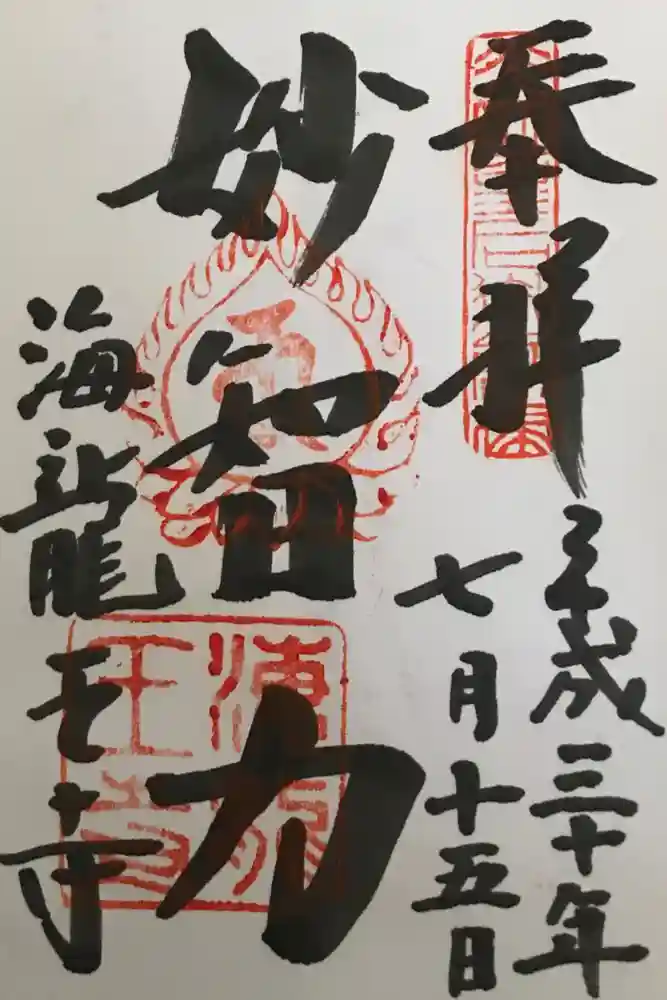 奉拝
平成三十年
七月十五日
妙智力
海龍王寺
海龍
王寺